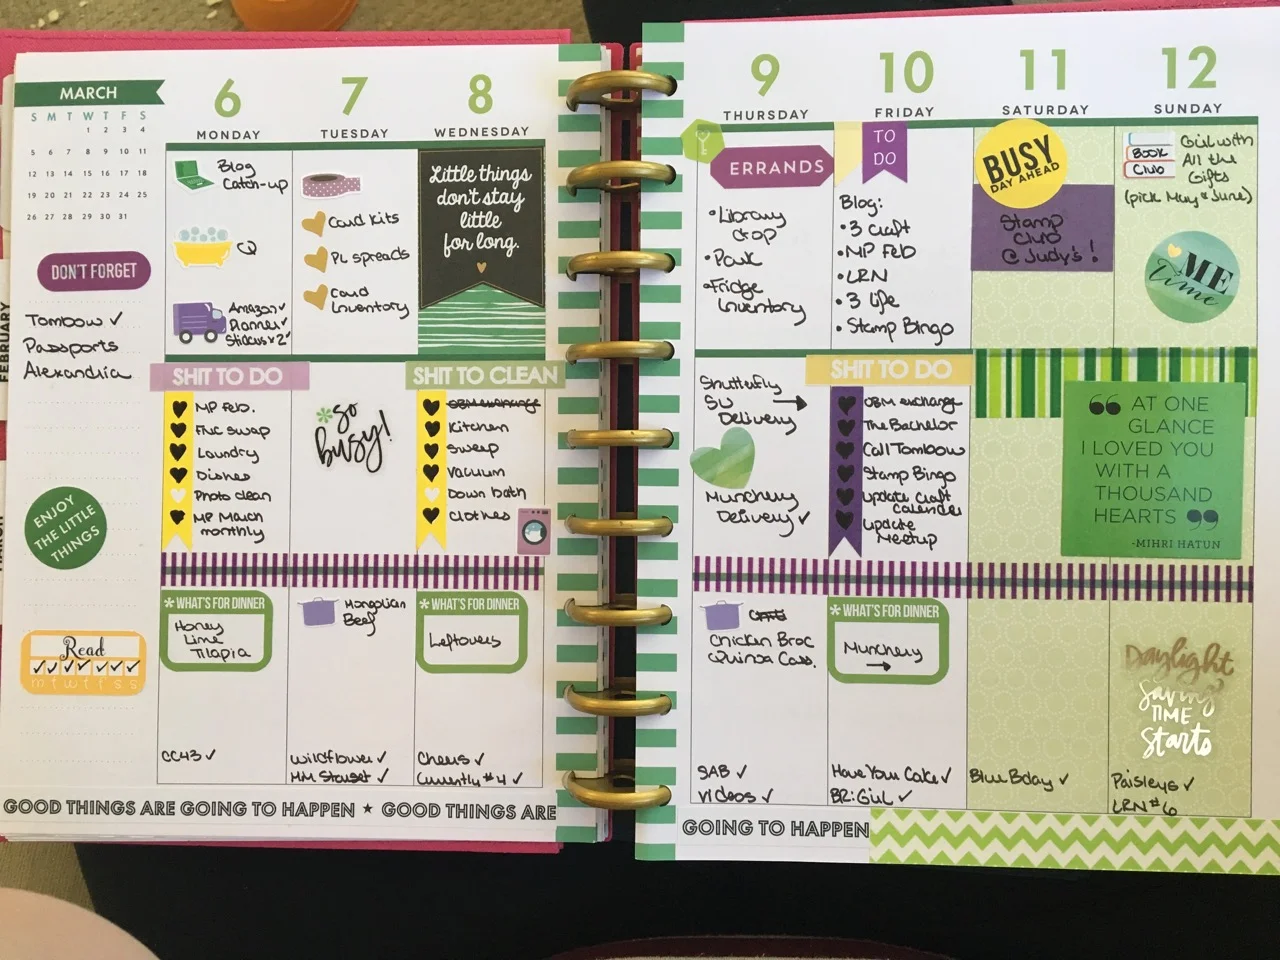 MARCH
S M T W T F S
1 2 3 4
5 6 7 8 9 10 11
12 13 14 15 16 17 18
19 20 21 22 23 24 25
26 27 28 29 30 31
DON'T FORGET
Tombow ✓
Passports
Alexandria
ENJOY
THE LITTLE
THINGS
Read
✓ ✓ ✓ ✓ ✓ ✓ ✓
m t w t f s s
FEBRUARY
MARCH
6
MONDAY
Blog
Catch-up
Amazon ✓
Planner ✓
Stickers x2 ✓
SHIT TO DO
MP Feb.
FNC swap
Laundry
Dishes
Photo clean
MP March
monthly
*WHAT'S FOR DINNER
Honey
Lime
Tilapia
CC43 ✓
7
TUESDAY
Card Kits
PL spreads
Card
Inventory
*so
busy!
Mongolian
Beef
Wildflower ✓
HM Starset ✓
8
WEDNESDAY
Little things
don't stay
little
for long.
SHIT TO CLEAN
OBM exchange
Kitchen
Sweep
Vacuum
Down bath
Clothes
*WHAT'S FOR DINNER
Leftovers
Cheers ✓
Currently #4 ✓
9
THURSDAY
ERRANDS
•Library
drop
•Park
•Fridge
Inventory
Shutterfly
SU
Delivery
Munchery
Delivery ✓
Chicken Broc
Quinoa Cass.
SAB ✓
Videos ✓
10
FRIDAY
TO
DO
Blog:
•3 Craft
•MP Feb
•LRN
•3 life
•Stamp Bingo
SHIT TO DO
OBM exchange
The Bachelor
Call Tombow
Stamp Bingo
Update Craft
Calendar
Update
Meetup
*WHAT'S FOR DINNER
Munchery
→
Have Your Cake ✓
BR: Girl ✓
11
SATURDAY
BUSY
DAY AHEAD
Stamp
Club
@ Judy's!
Blue Bday ✓
12
SUNDAY
BOOK
Club
Girl with
All the
Gifts
(pick May & June)
ME
time
AT ONE
GLANCE
I LOVED YOU
WITH A
THOUSAND
HEARTS
-MIHRI HATUN
Daylight
Saving
TIME
Starts
Paisleys ✓
LRN #6
GOOD THINGS ARE GOING TO HAPPEN ★ GOOD THINGS ARE
GOING TO HAPPEN